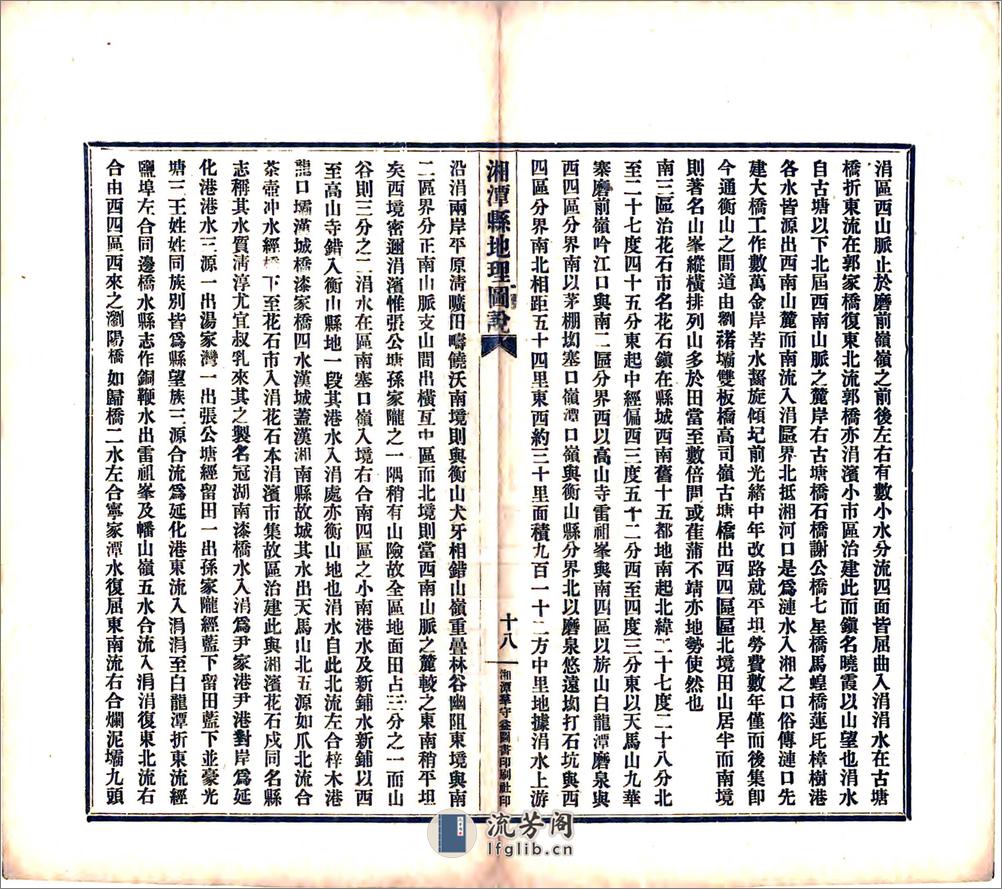 涓區西山脈止於磨前嶺嶺之前後左右有數小水分流四面皆屈曲入涓涓水在古塘
橋折東流在郭家橋復東北流郭橋亦涓濱小市區治建此而鎮名曉霞以山望也涓水
自古塘以下北屆西南山脈之麓岸右古塘橋石橋謝公橋七星橋馬蝗橋蓮氏樟樹港
各水皆源出西南山麓而南流入涓區界北抵湘河口是為漣水入湘之口俗傳漣口先
建大橋工作數萬金岸苦水齧旋傾圮前光緒中年改路就平坦勞費數年僅而後集即
今通衡山之間道由劉褚壩雙板橋高司嶺古塘橋出西四區區北境田山居半而南境
則著名山峯縱橫排列山多於田當至數倍間或萑蒲不靖亦地勢使然也
南三區治花石市名花石鎮在縣城西南舊十五都地南起北緯二十七度二十八分北
至二十七度四十五分東起中經偏西三度五十二分西至四度三分東以天馬山九華
寨磨前嶺吟江口與南二區分界西以高山寺雷祖峯與南四區以旂山白龍潭磨泉與
西四區分界南以茅棚坳塞口嶺潭口嶺與衡山縣分界北以磨泉悠遠坳打石坑與西
四區分界南北相距五十四里東西約三十里面積九百一十二方中里地據涓水上游
湘潭縣地理圖說
十八
湘潭羣守益圖書印刷社印
沿涓兩岸平原清曠田疇饒沃南境則與衡山犬牙相錯山嶺重疊林谷幽阻東境與南
二區界分正南山脈支山間出橫互中區而北境則當西南山脈之麓較之東南稍平坦
矣西境密邇涓濱惟張公塘孫家隴之一隅稍有山險故全區地面田占三分之一而山
谷則三分之二涓水在區南塞口嶺入境右合南四區之小南港水及新鋪水新鋪以西
至高山寺錯入衡山縣地一段其港水入涓處亦衡山地也涓水自此北流左合梓木港
龍口壩漢城橋漆家橋四水漢城蓋漢湘南縣故城其水出天馬山北五源如爪北流合
茶壺冲水經橋下至花石市入涓花石本涓濱市集故區治建此與湘濱花石戍同名縣
志稱其水質清淳尤宜叔乳來其之製名冠湖南漆橋水入涓為尹家港尹港對岸為延
化港港水三源一出湯家灣一出張公塘經留田一出孫家隴經藍下留田藍下並豪光
塘三王姓姓同族別皆為縣望族三源合流為延化港東流入涓涓至白龍潭折東流經
鹽埠左合同邊橋水縣志作銅鞭水出雷祖峯及幡山嶺五水合流入涓涓復東北流右
合由西四區西來之瀏陽橋如歸橋二水左合寧家潭水復屈東南流右合爛泥壩九頭
流芳阁
lfglib.cn